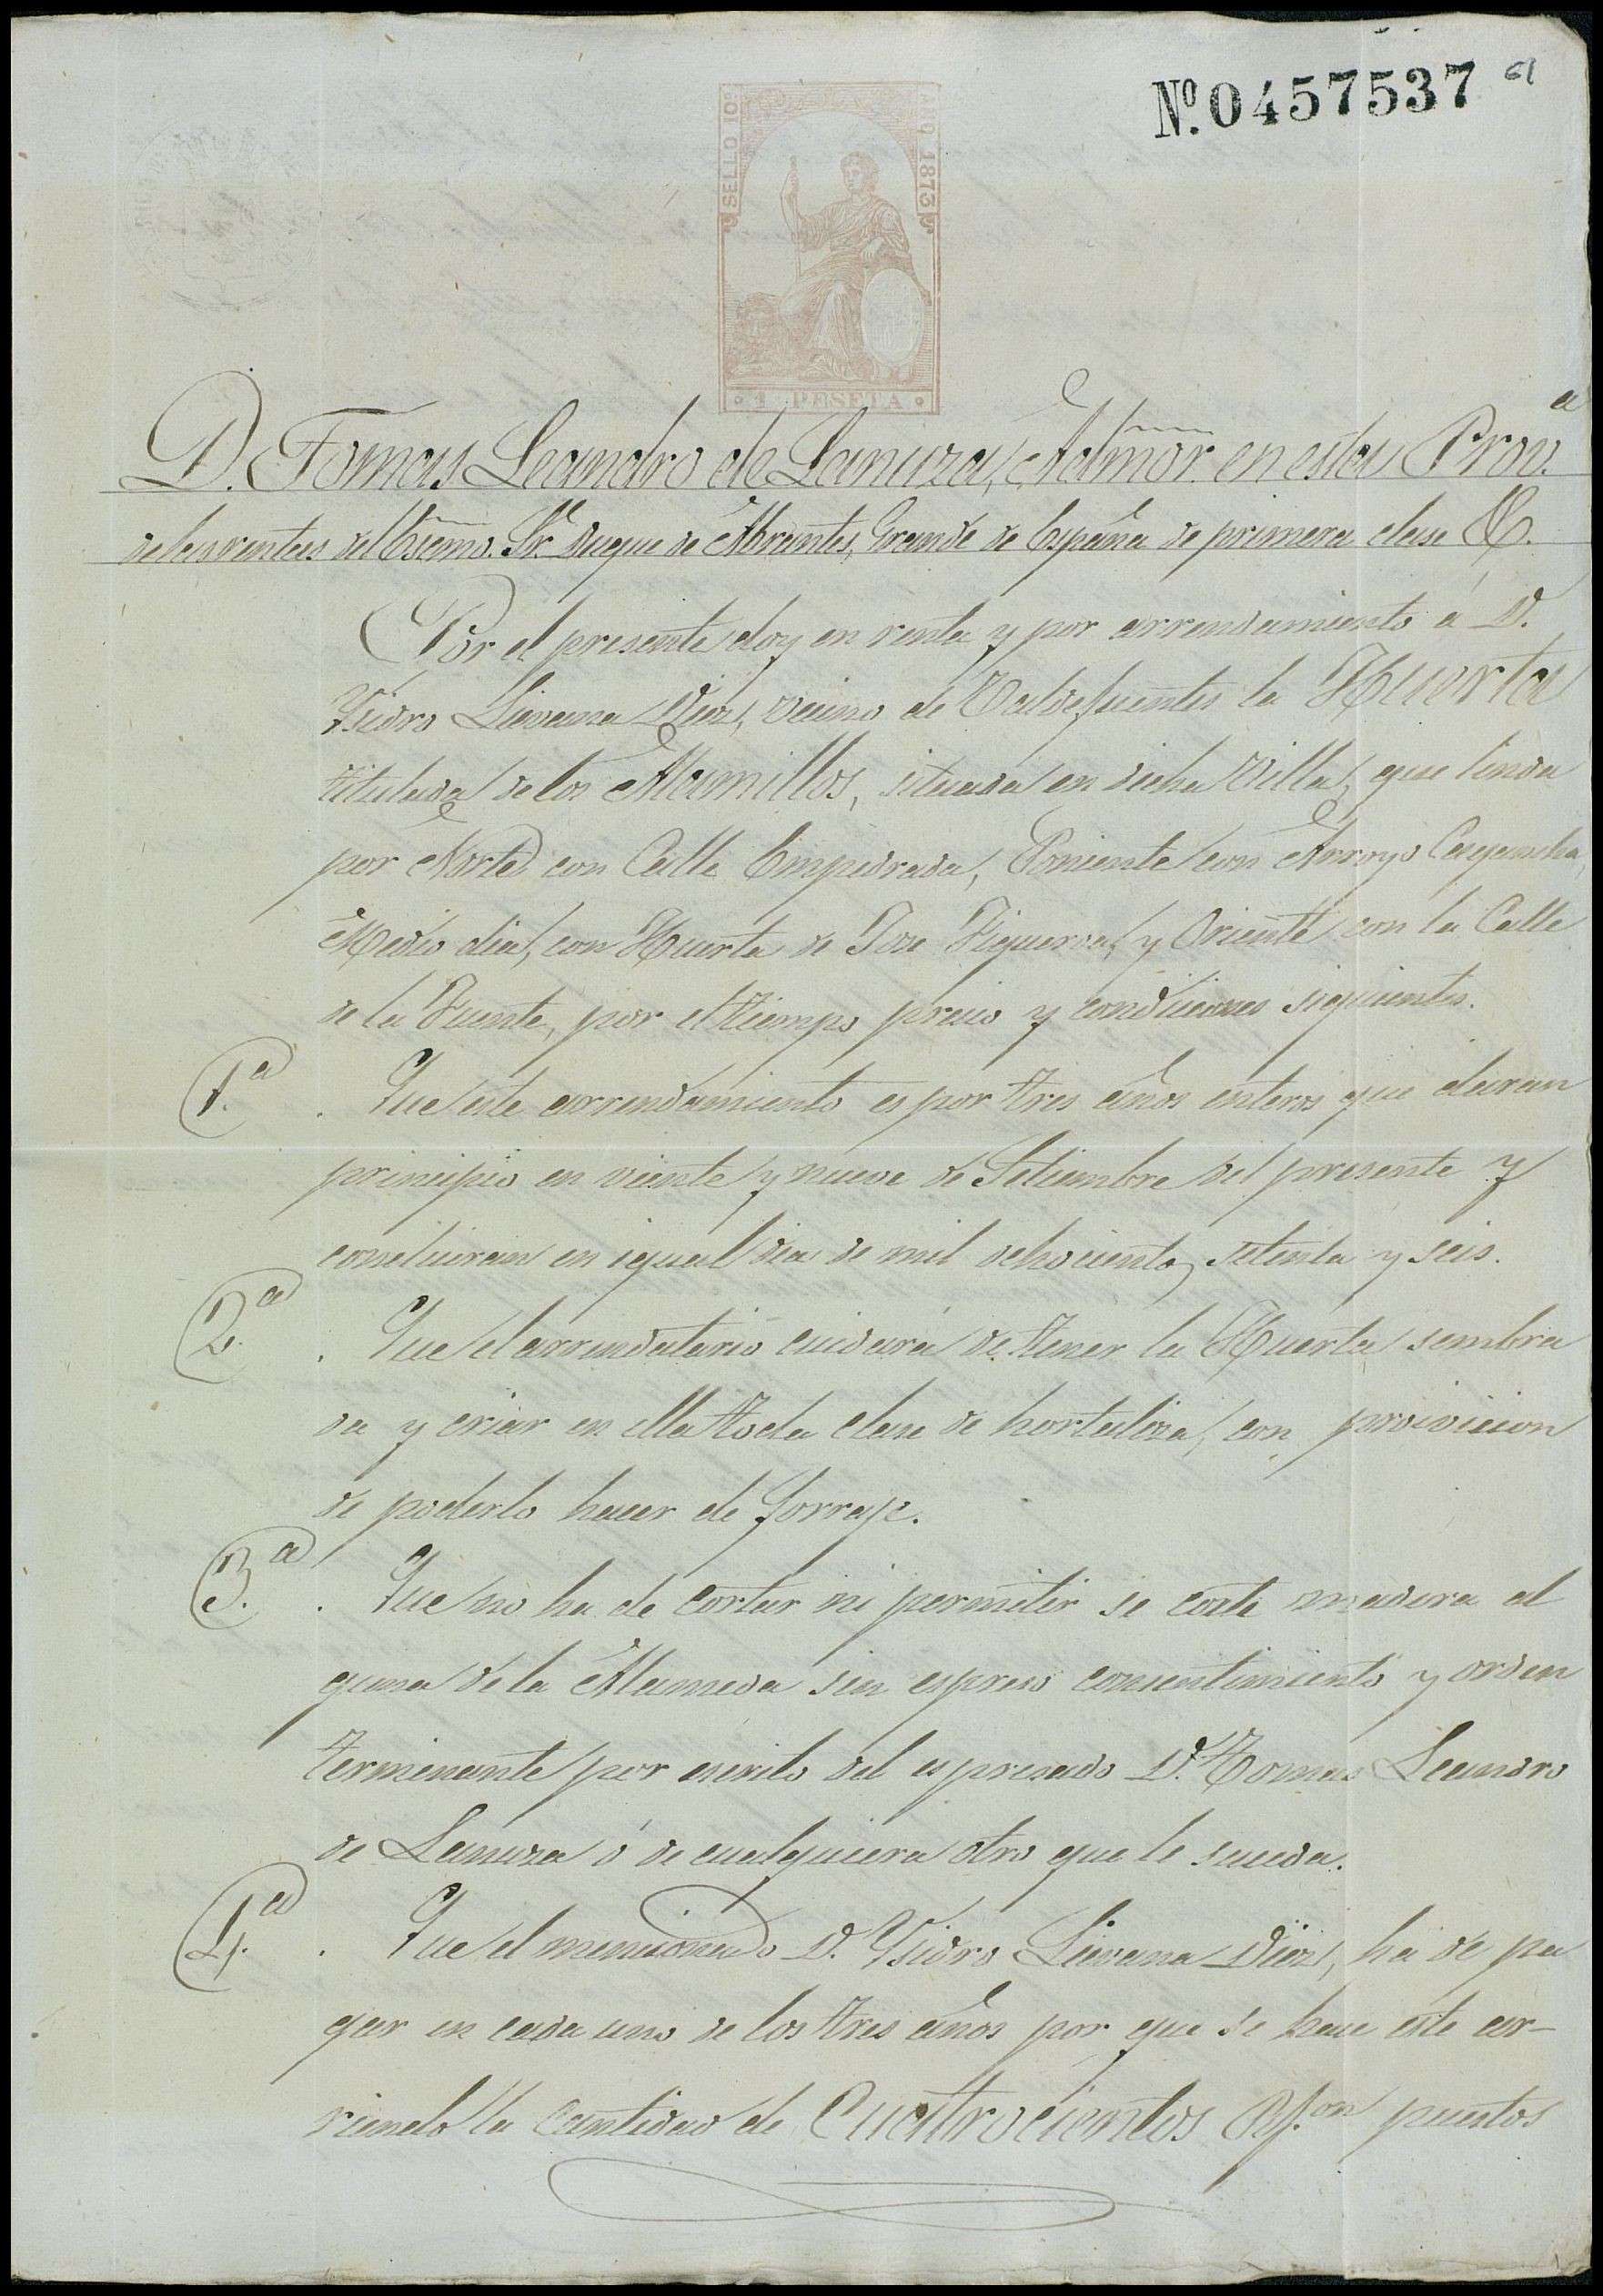 Nº. 0457537 61
SELLO 10º AÑO 1873
1 PESETA
D. Tomas Leandro de Lanuza, Admor. en esta Prov.ª
de las rentas del Escmo. Sr. Duque de Abrantes, Grande de España de primera clase &.
Por el presente doy en renta y por arrendamiento á D.
Ysidro Lievana Diez, vecino de Valdefuentes la Huerta
titulada de los Alamillos, situada en dicha Villa, que linda
por Norte con Calle Empedrada, Poniente con Arroyo Cagancha,
Medio dia, con Huerta de Jose Figueroa, y Oriente con la Calle
de la Fuente, por el tiempo precio y condiciones siguientes.
1.ª . Que este arrendamiento es por tres años enteros que daran
principio en viente y nueve de Setiembre del presente y
concluiran en igual dia de mil ochocientos setenta y seis.
2.ª . Que el arrendatario cuidará de tener la Huerta sembra
da y criar en ella toda clase de hortaliza, con proivicion
de poderlo hacer de forraje.
3.ª . Que no ha de cortar ni permitir se corte madera al
guna de la Alameda sin espreso consentimiento y orden
terminante por escrito del espresado D. Tomas Leandro
de Lanuza ó de cualquiera otro que le suceda.
4.ª . Que el mencionado D. Ysidro Lievana Diez, ha de pa
gar en cada uno de los tres años por que se hace este ar-
riendo la cantidad de Cuatrocientos R.on puestos